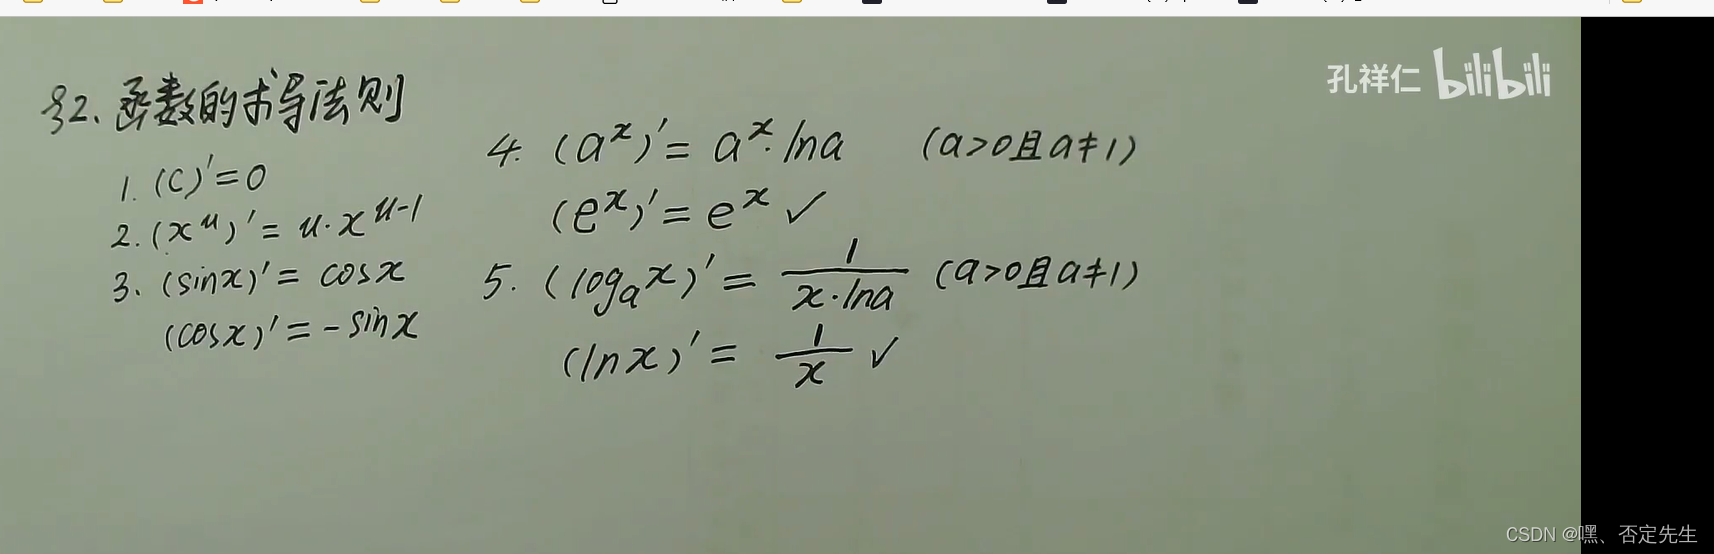 孔祥仁 bilibili
§2. 函数的求导法则
1. (C)' = 0
2. (x^u)' = u·x^{u-1}
3. (sinx)' = cosx
(cosx)' = -sinx
4. (a^x)' = a^x·lna (a>0且a≠1)
(e^x)' = e^x ✓
5. (log_a x)' = \frac{1}{x·lna} (a>0且a≠1)
(lnx)' = \frac{1}{x} ✓
CSDN @嘿、否定先生